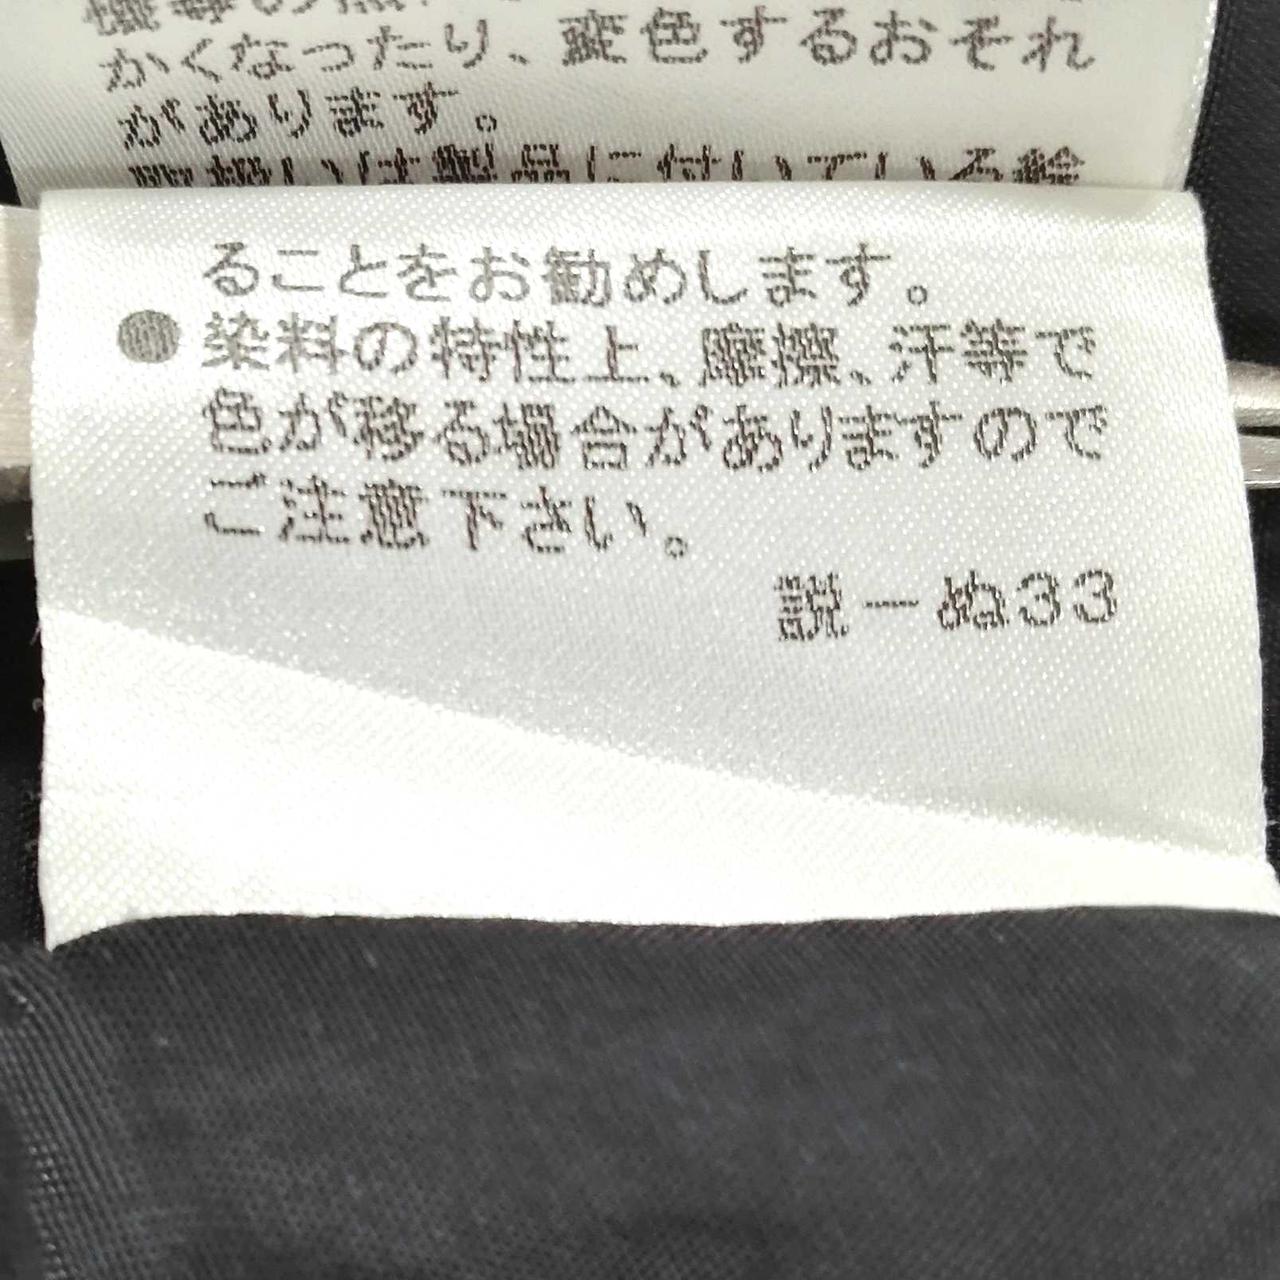 かくなったり、変色するおそれ
があります。
取扱いは製品に付いている絵
ることをお勧めします。
●染料の特性上、摩擦、汗等で
色が移る場合がありますので
ご注意下さい。
説－ぬ33